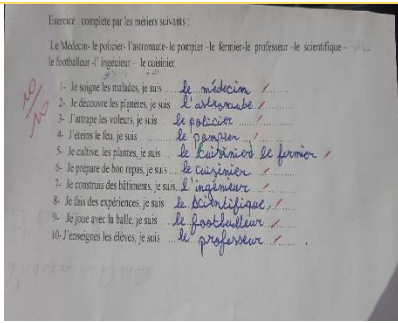 Exercice : complète par les métiers suivants :
Le Medecin- le policier- l'astronaute- le pompier –le fermier-le professeur –le scientifique –
le footballeur –l' ingénieur – le cuisinier
10/10
1- Je soigne les malades, je suis .... le médecin
2- Je découvre les planètes, je suis l'astronaute
3- J'attrape les voleurs, je suis le policier
4- J'éteins le feu, je suis ..... le pompier
5- Je cultive, les plantes, je suis .. le cuisinier le fermier
6- Je prépare de bon repas, je suis ... le cuisinier
7- Je construis des bâtiments, je suis.. l'ingénieur
8- Je fais des expériences, je suis le scientifique,
9- Je joue avec la balle, je suis .... le footballeur
10-J'enseignes les élèves, je suis .... le professeur